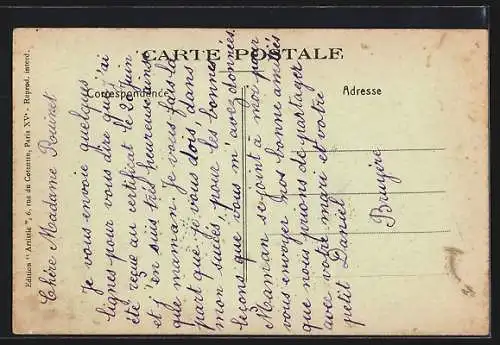 CARTE POSTALE
Correspondance
Adresse
Edition "Artistic", 6, rue du Commerce, Paris XVe - Reprod. interd.
Chère Madame Bouinet
Je vous envoie quelques
lignes pour vous dire que j'ai
été reçue au certificat le 20 Juin
et j'en suis très heureuse ainsi
que maman. Je vous fais la
part que je vous dois dans
mon succès, pour les bonnes
leçons que vous m'avez données.
Maman se joint à moi pour
vous envoyer nos bonne amitiés
que nous prions de partager
avec votre mari et votre
petit Daniel
Bruyère